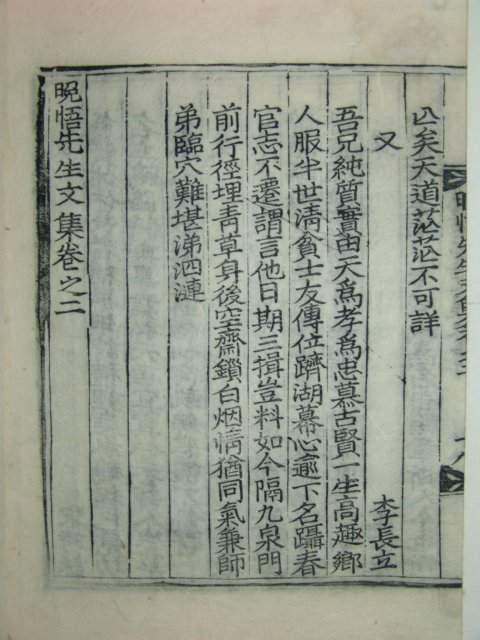 已矣天道茫茫不可詳
又 李長立
吾兄純質實由天爲孝爲忠慕古賢一生高趣鄕
人服半世淸貧士友傳位躋湖幕心逾下名躡春
官志不遷謂言他日期三揖豈料如今隔九泉門
前行徑埋靑草身後空齋鎖白烟情猶同氣兼師
弟臨穴難堪涕泗漣
晩悟先生文集卷之二